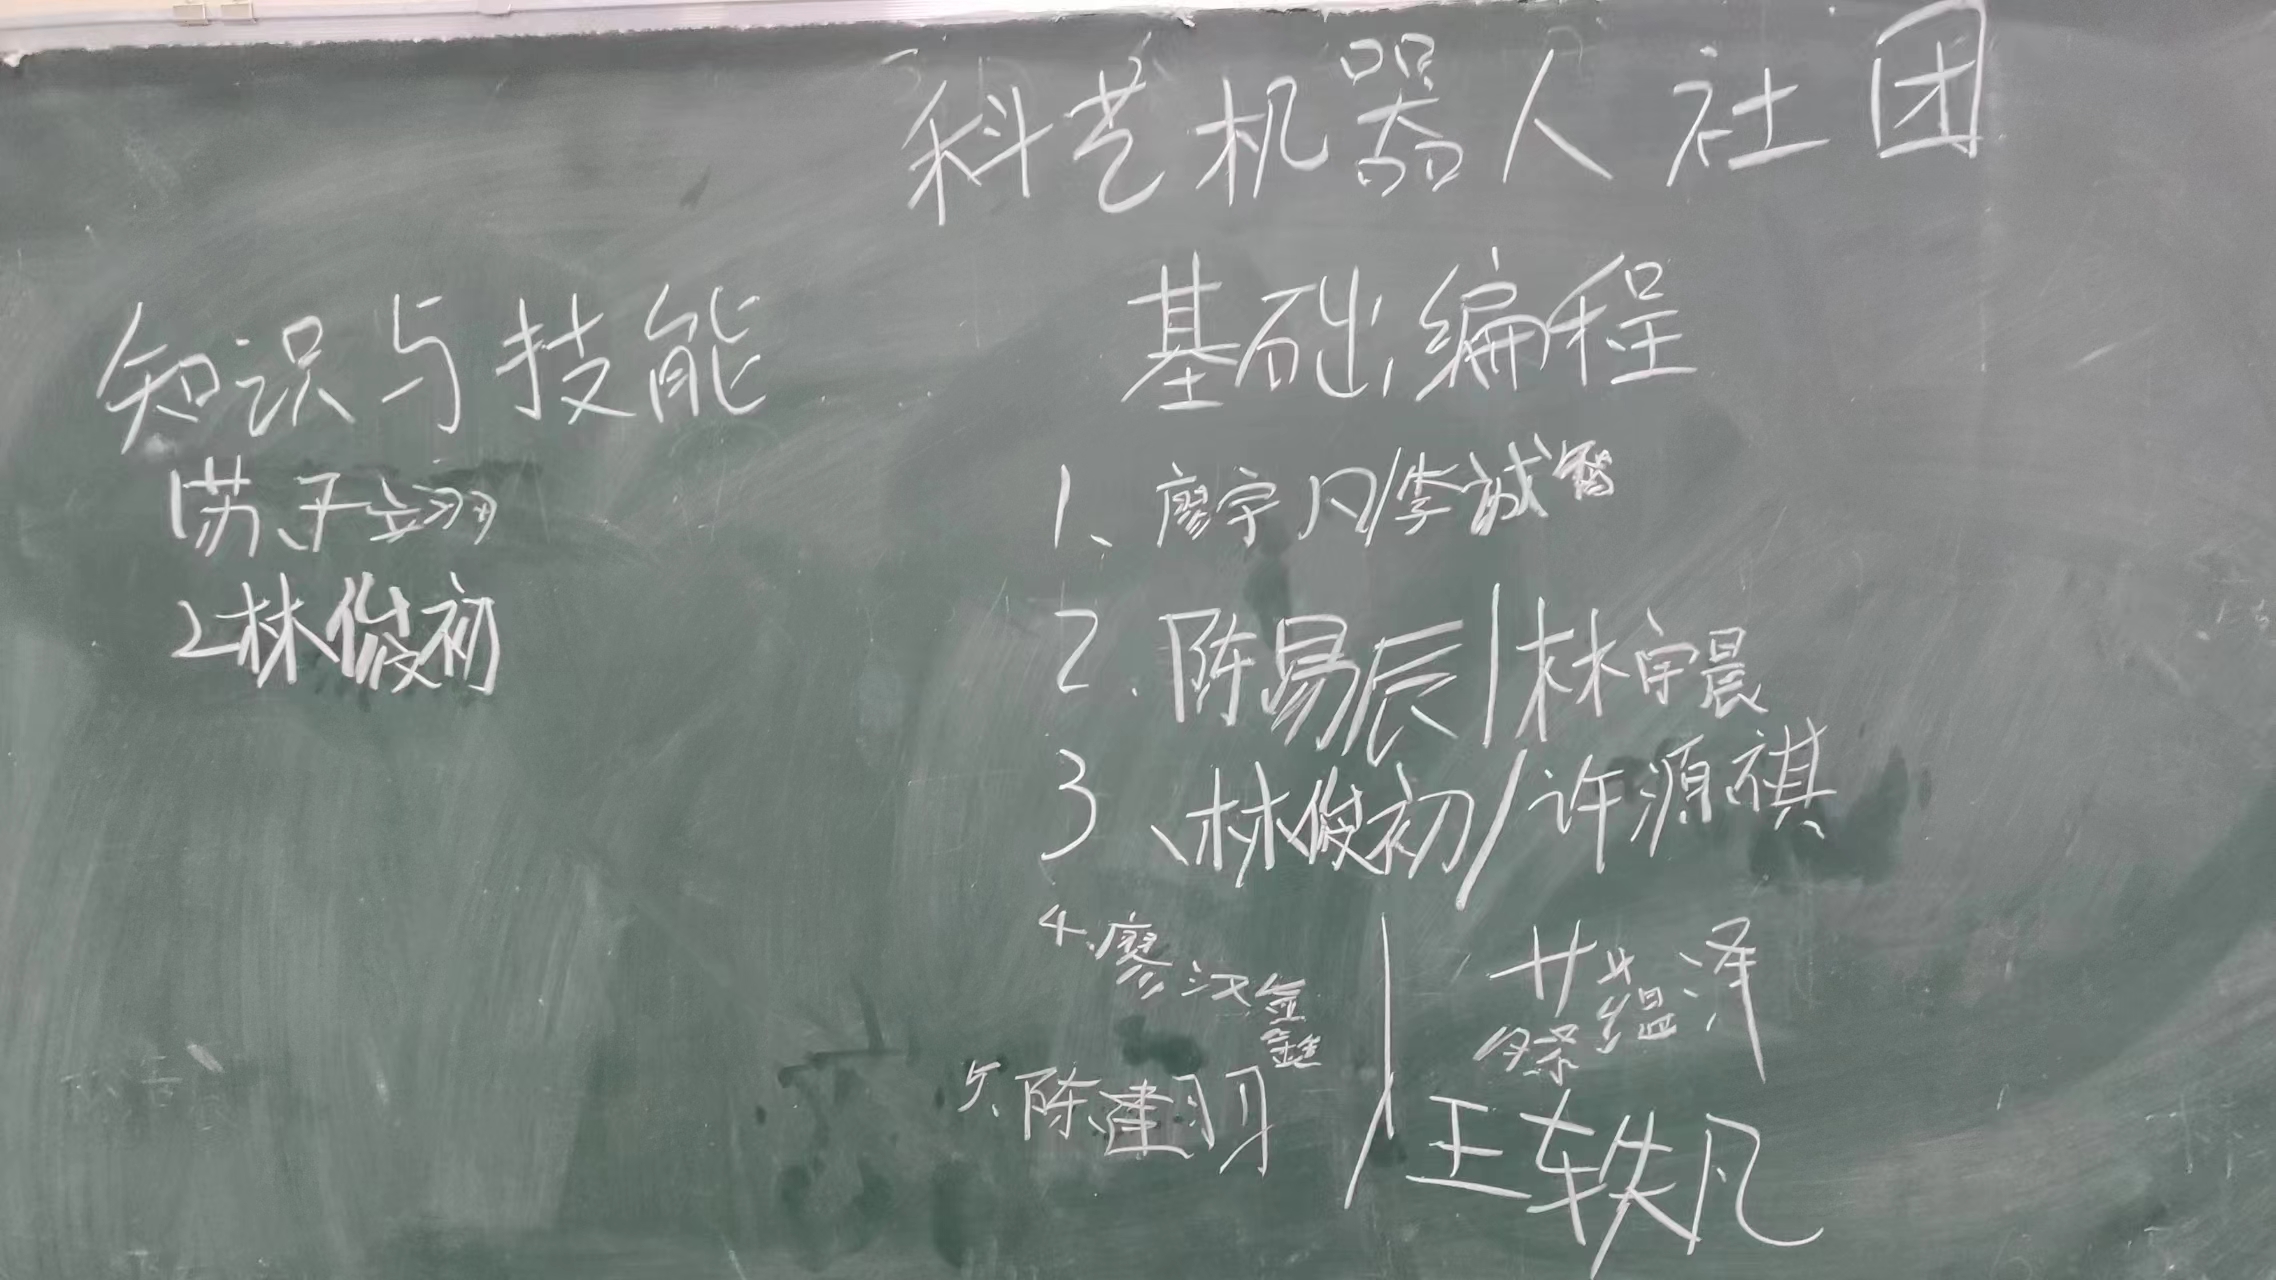 科艺机器人社团
知识与技能
1苏子立羽
2林俊初
基础编程
1、廖宇凡/李诚智
2.陈易辰/林宇晨
3、林俊初/许源祺
4.廖汉鑫/蔡蕴泽
5、陈建羽/王轶凡